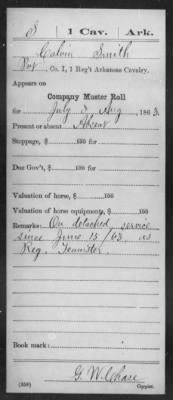 S | 1 Cav. | Ark.
Calvin Smith
Pvt, Co. I, 1 Reg't Arkansas Cavalry.
Appears on
Company Muster Roll
for July & Aug, 1863.
Present or absent Absent
Stoppage, $ 100 for
Due Gov't, $ 100 for
Valuation of horse, $ 100
Valuation of horse equipments, $ 100
Remarks: On detached service
since June 15/63 as
Reg. Teamster.
Book mark:
G. W. Chase
(358) Copyist.